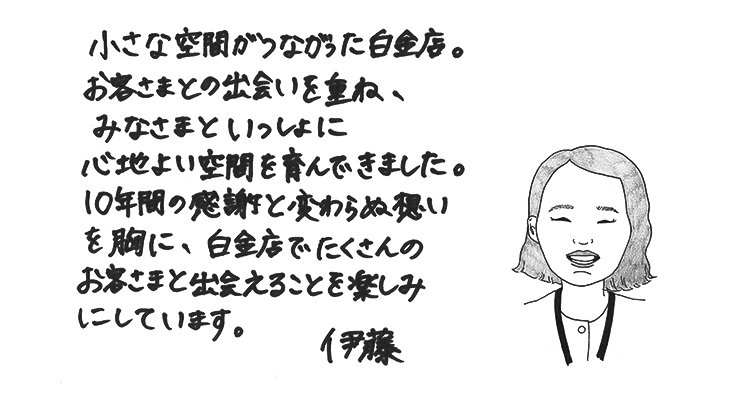 小さな空間がつながった白金店。
お客さまとの出会いを重ね、
みなさまといっしょに
心地よい空間を育んできました。
10年間の感謝と変わらぬ想い
を胸に、白金店でたくさんの
お客さまと出会えることを楽しみ
にしています。
伊藤